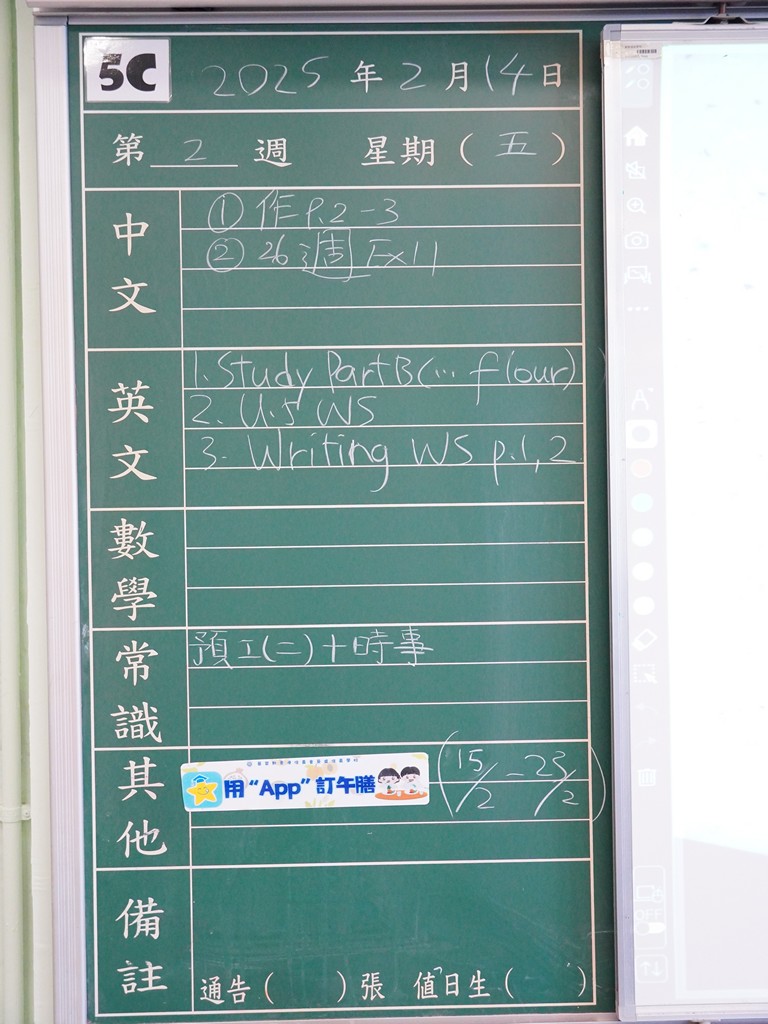 5C 2025年2月14日
第2週 星期（五）
中文
① 作 P.2-3
② 26週 Ex11
英文
1. Study Part B (... flour)
2. U.5 WS
3. Writing WS p.1, 2
數學
常識
預工(二)+時事
其他
用“App”訂午膳
(15/2 - 23/2)
備註
通告（ ）張 值日生（ ）
OFF